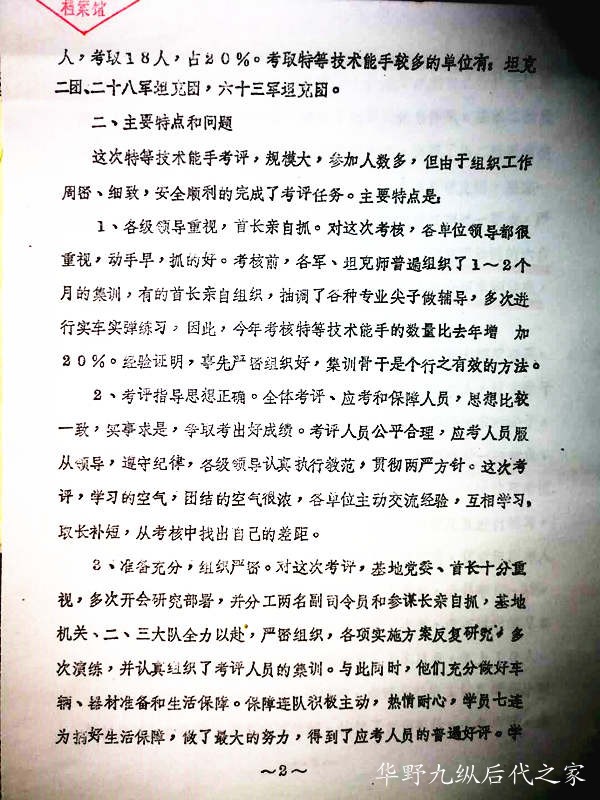 档案馆
人，考取18人，占20%。考取特等技术能手较多的单位有：坦克
二团、二十八军坦克团，六十三军坦克团。
二、主要特点和问题
这次特等技术能手考评，规模大，参加人数多，但由于组织工作
周密、细致，安全顺利的完成了考评任务。主要特点是：
1、各级领导重视，首长亲自抓。对这次考核，各单位领导都很
重视，动手早，抓的好。考核前，各军、坦克师普遍组织了1～2个
月的集训，有的首长亲自组织，抽调了各种专业尖子做辅导，多次进
行实车实弹练习，因此，今年考核特等技术能手的数量比去年增 加
20%。经验证明，事先严密组织好，集训骨干是个行之有效的方法。
2、考评指导思想正确。全体考评、应考和保障人员，思想比较
一致，实事求是，争取考出好成绩。考评人员公平合理，应考人员服
从领导，遵守纪律，各级领导认真执行教范，贯彻两严方针。这次考
评，学习的空气，团结的空气很浓，各单位主动交流经验，互相学习，
取长补短，从考核中找出自己的差距。
3、准备充分，组织严密。对这次考评，基地党委、首长十分重
视，多次开会研究部署，并分工两名副司令员和参谋长亲自抓，基地
机关、二、三大队全力以赴，严密组织，各项实施方案反复研究，多
次演练，并认真组织了考评人员的集训。与此同时，他们充分做好车
辆、器材准备和生活保障。保障连队积极主动，热情耐心，学员七连
为搞好生活保障，做了最大的努力，得到了应考人员的普遍好评。学
～2～
华野九纵后代之家